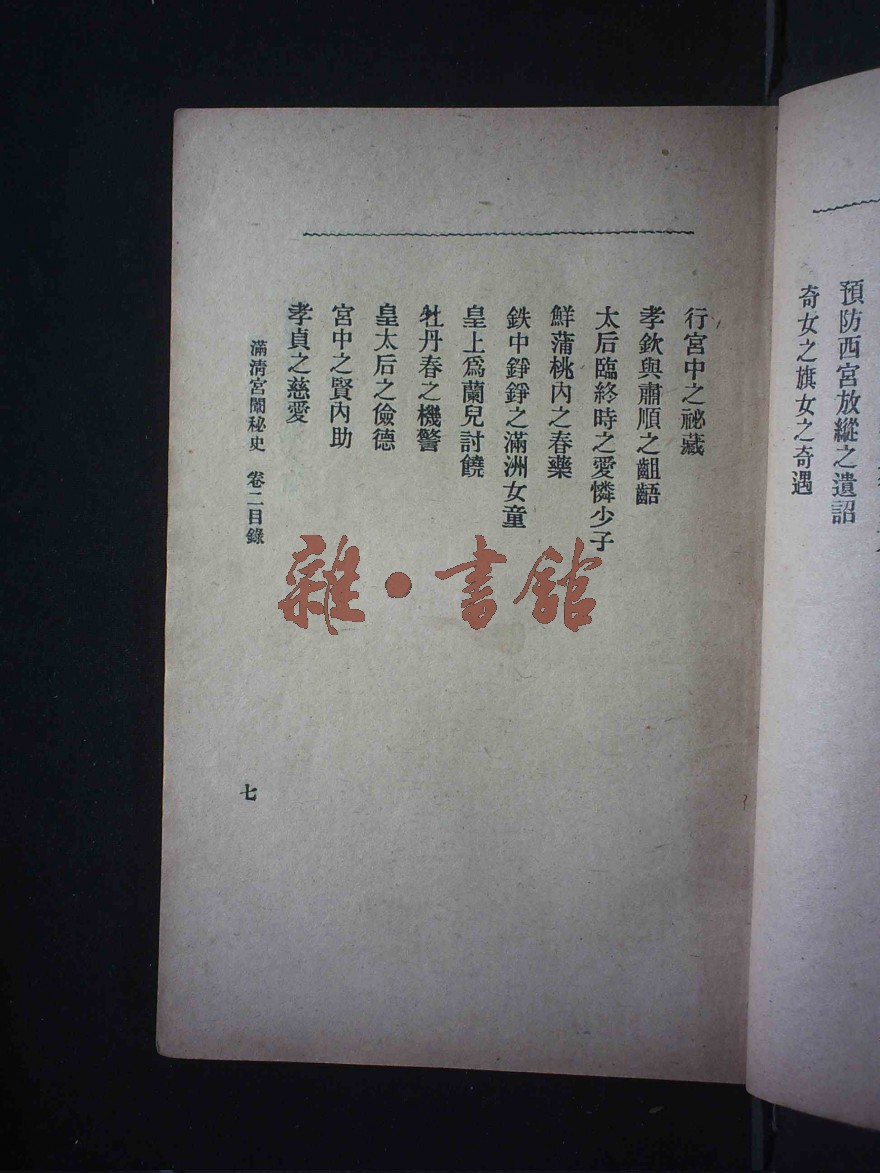 預防西宮放縱之遺詔
奇女之旗女之奇遇
行宮中之祕藏
孝欽與肅順之齟齬
太后臨終時之愛憐少子
鮮蒲桃內之春藥
鉄中錚錚之滿洲女童
皇上爲蘭兒討饒
牡丹春之機警
皇太后之儉德
宮中之賢內助
孝貞之慈愛
滿清宮闈秘史 卷二目錄
七
雜·書館